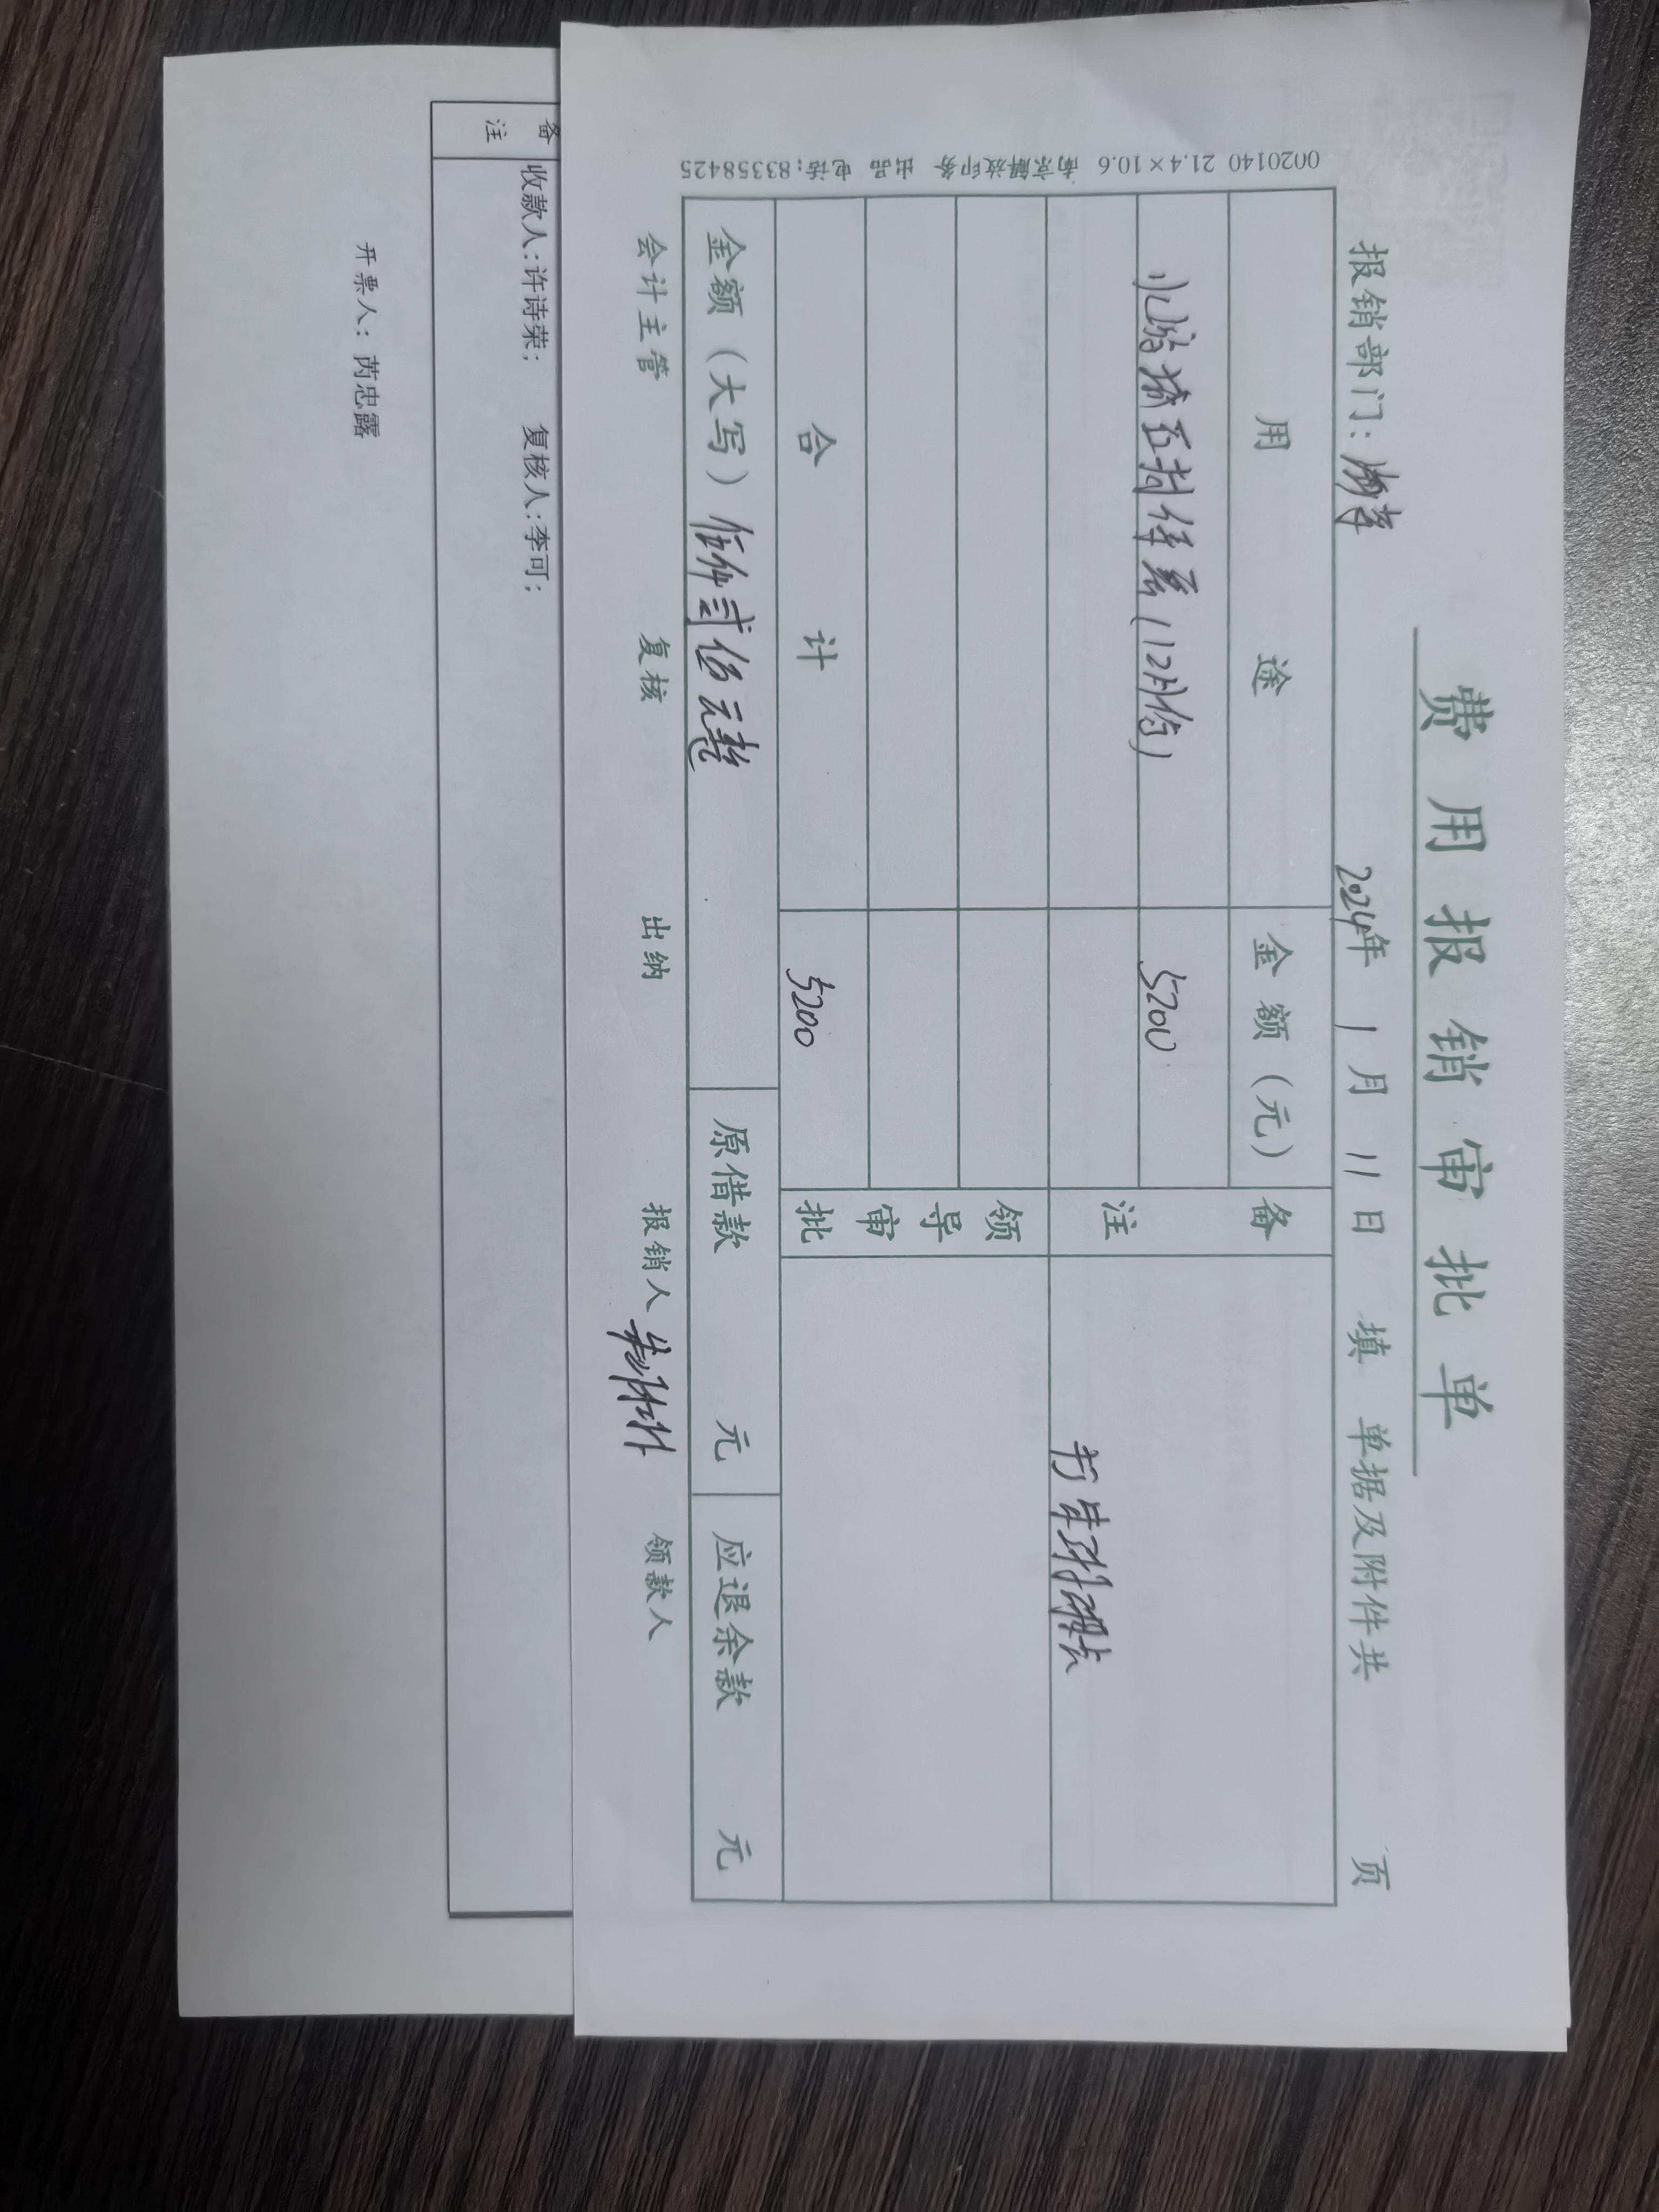 费用报销审批单
报销部门:
2024年 1 月 11 日 填 单据及附件共 页
用 途 金 额 (元) 备
5200 注
(12月份)
领
导
审
合 计 5200 批
金额(大写) 伍仟贰佰元整 原借款 元 应退余款 元
会计主管 复核 出纳 报销人 领款人
0020140 21.4×10.6 南京解放印务 出品 电话:83358425
备
注
收款人:许诗荣; 复核人:李可;
开票人: 芮忠露